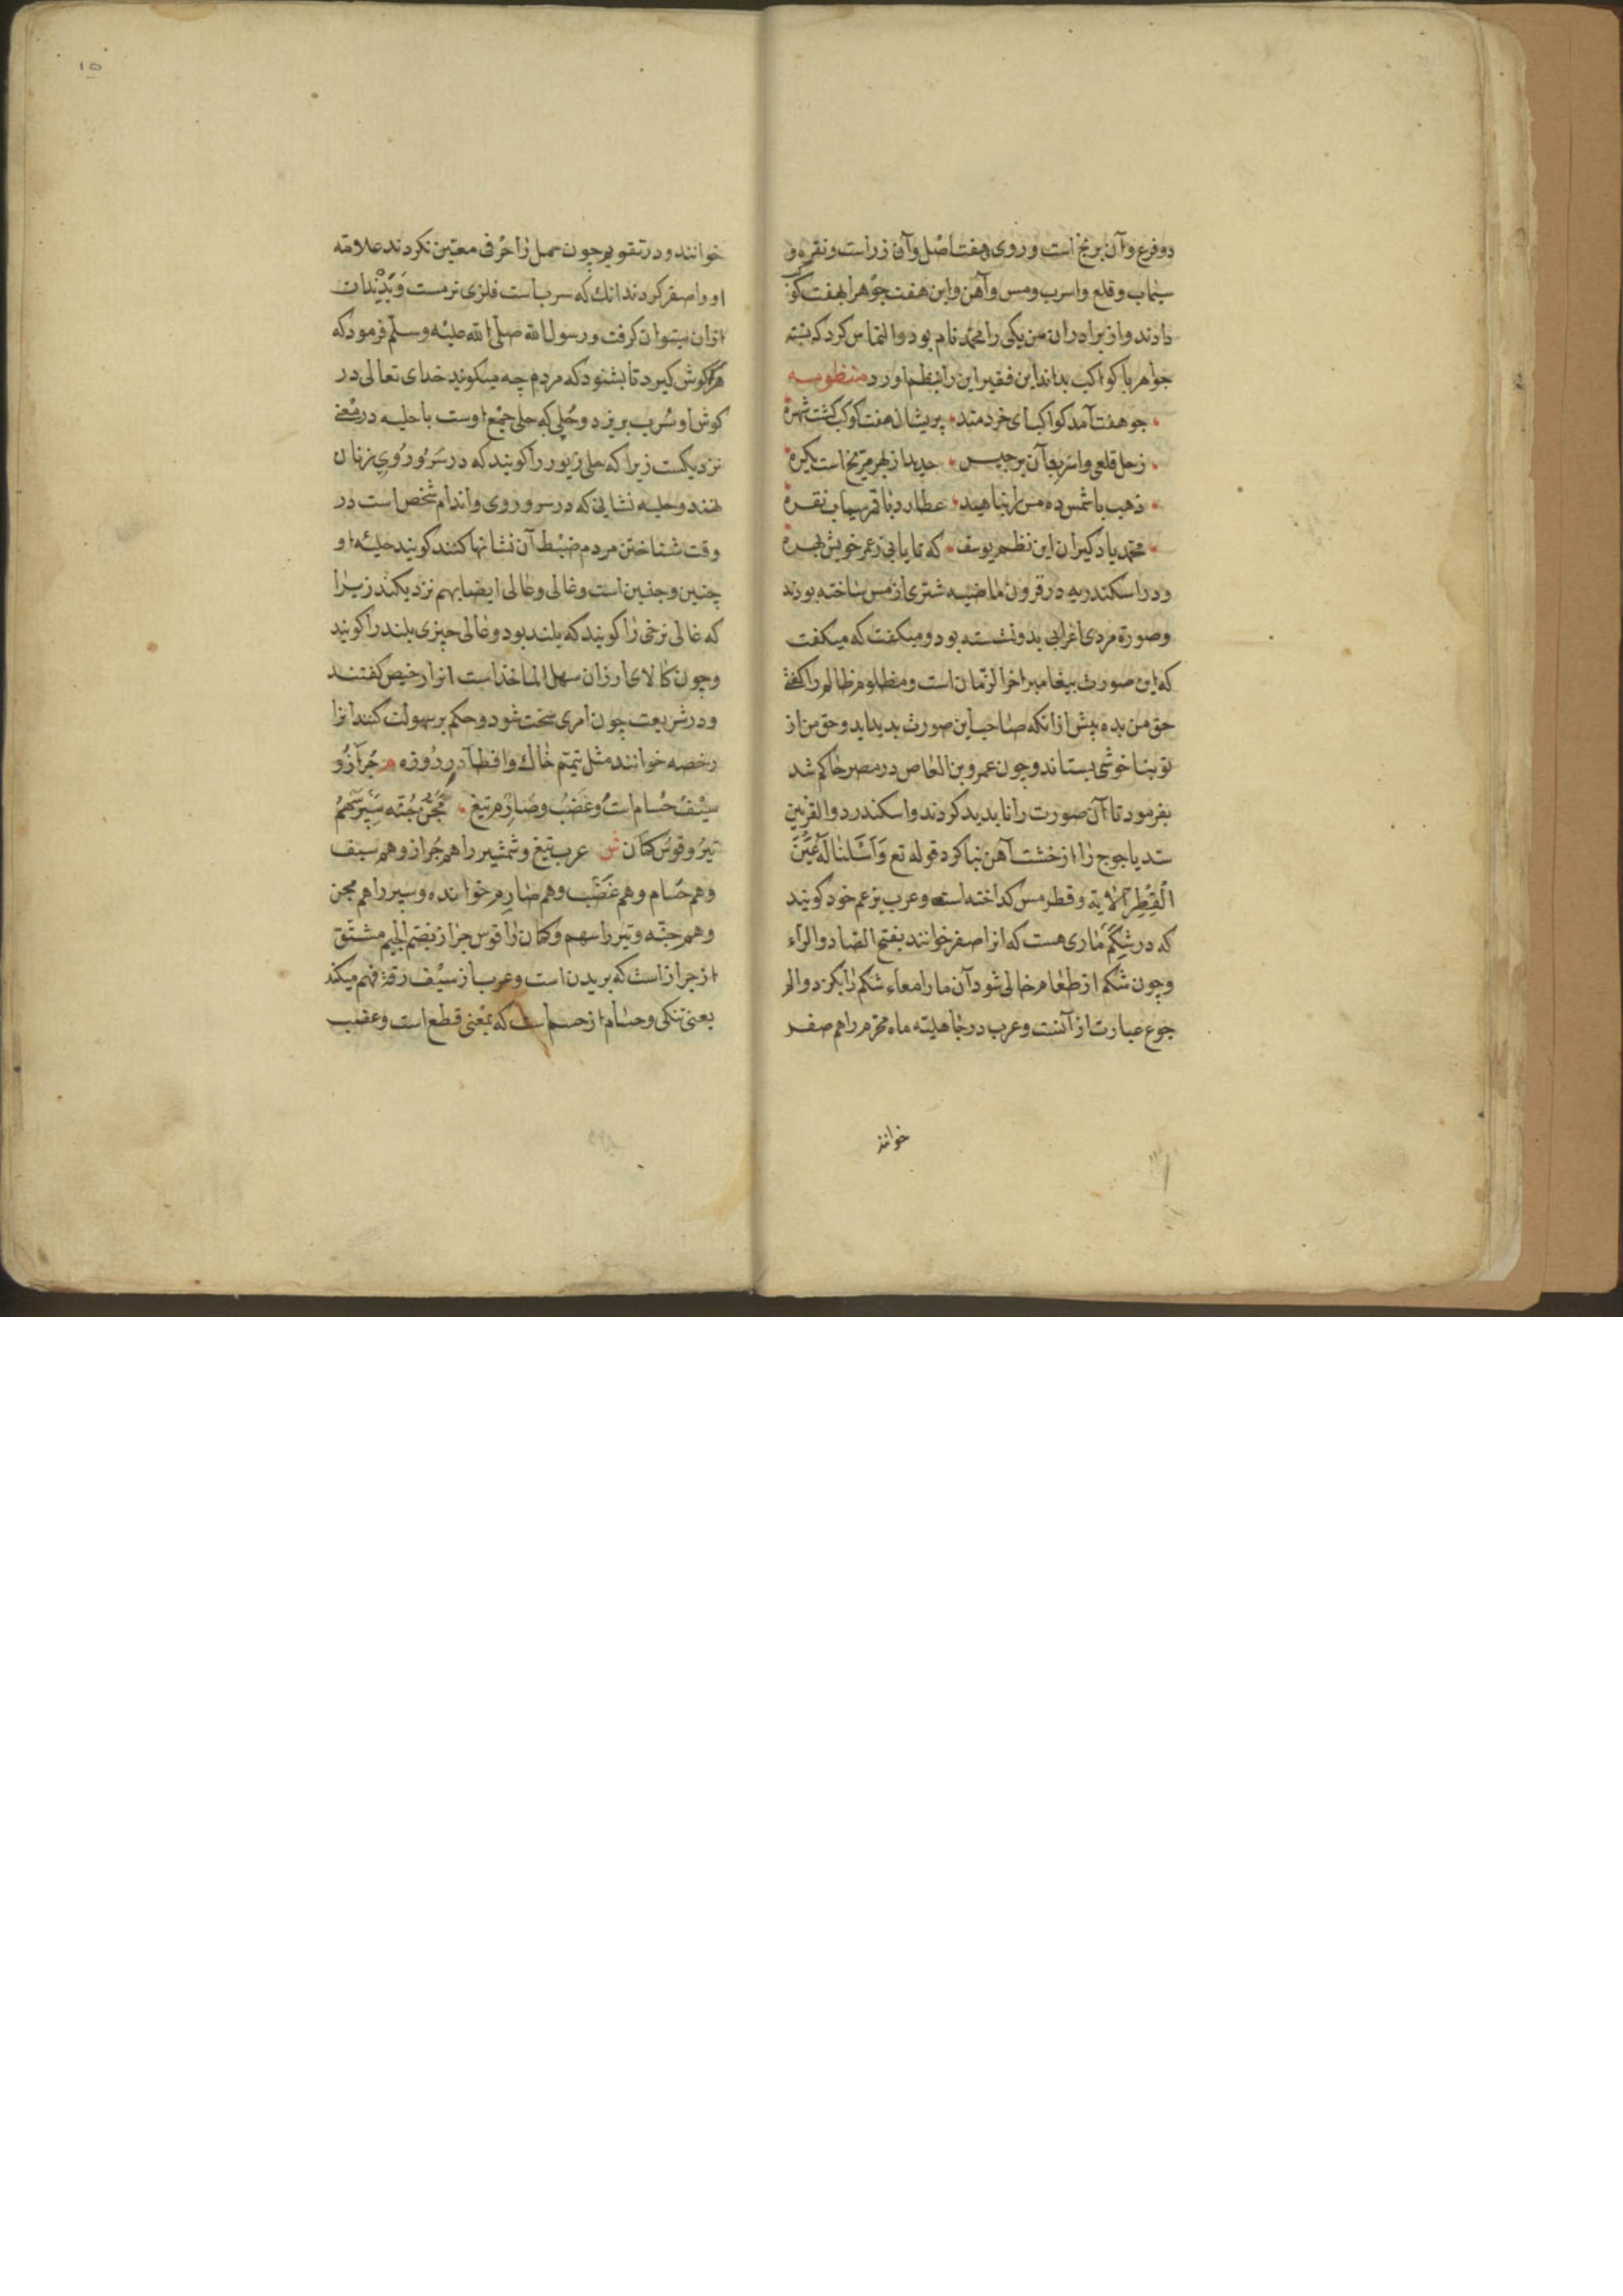 دو فرع و آن برنج است و روی هفت اصل و آن زر است و نقره و
سیماب و قلع و اسرب و مس و آهن و این هفت جوهر را بهفت کوکب
دادند و از برادران من یکی را محمد نام بود والتماس کرد که نسبة
جواهر با کواکب بداند این فقیر این را بنظم اورد منظومه
جو هفت آمد کواکب ای خردمند بریشان هفت کوکب کشت شهره
زحل قلعی و اسرب آن برجیس حدید از بهر مریخ است یکره
ذهب با شمس ده مس را بناهید عطارد با قمر سیماب نقره
محمد یاد کیر از این نظم یوسف که تا یابی ز عمر خویش بهره
و در اسکندریه در قرون ماضیه شتری از مس ساخته بودند
و صورة مردی اعرابی بدو نشسته بود و میکفت که میکفت
که این صورت بیغامبر اخر الزمان است و مظلوم ظالم را کفتی
حق من بده بیش از انکه صاحب این صورت بدید اید و حق من از
تو بناخوشی بستاند و چون عمرو بن العاص در مصر حاکم شد
بفرمود تا آن صورت را نابدید کردند و اسکندر ذو القرنین
سد یاجوج را از خشت آهن بنا کرد قوله تع وَاَسَلنا لَهُ عَیْنَ
الْقِطْرِ الایة و قطر مس کداخته است و عرب بزعم خود کویند
که در شکم ماری هست که انرا صفر خوانند بفتح الصاد و الراء
و چون شکم از طعام خالی شود آن مار امعاء شکم را بکزد و الم
جوع عبارت از آنست و عرب در جاهلیته ماه محرم را هم صفر
خوانند
۱۵
خوانند و در تقویم چون حمل را حرفی معین نکردند علامته
او را صفر کردند انك که سرب است فلزی نرمست و
ازان میتوان کرفت و رسول الله صلی الله علیه وسلم فرمود که
هرکه کوش کیرد تا بشنود که مردم چه میکویند خدای تعالی در
کوش او سُرب بریزد و حُلِی که حلی جمع اوست با حلیه در معنی
نزدیکست زیرا که حلی زیور را کویند که در سَر و رُوی زنان
نهند و حلیه نشانی که در سر و روی و اندام شخص است در
وقت شناختن مردم ضبط آن نشانها کنند کویند حلیهٔ او
چنین و چنین است و غالی و عالی ایضا بهم نزدیکند زیرا
که غالی نرخی را کویند که بلند بود و عالی چیزی بلند را کویند
و چون کالای ارزان سهل الماخذ است انرا رخیص کفتند
و در شریعت چون امری سخت شود و حکم بر سهولت کنند انرا
رخصه خوانند مثل تیمّم خاك و افطار در روزه م جُراز و
سیْفُ حُسام است و عَضْبُ و صَارِم تیغ مِجَنّ جُنّه سِپَر سَهْمُ
تیرُ و قوسُ کمان ش عرب تیغ و شمشیر را هم جُراز و هم سیف
و هم حُسام و هم عَضْب و هم صَارِم خوانده و سپر را هم مجن
و هم جنّه و تیر را سهم و کمان را قوس جراز بضم الجیم مشتق
از جراز است که بریدن است و عرب از سیف رقة فهم میکند
یعنی تنکی و حسام از حسم است که بمعنی قطع است و عضب